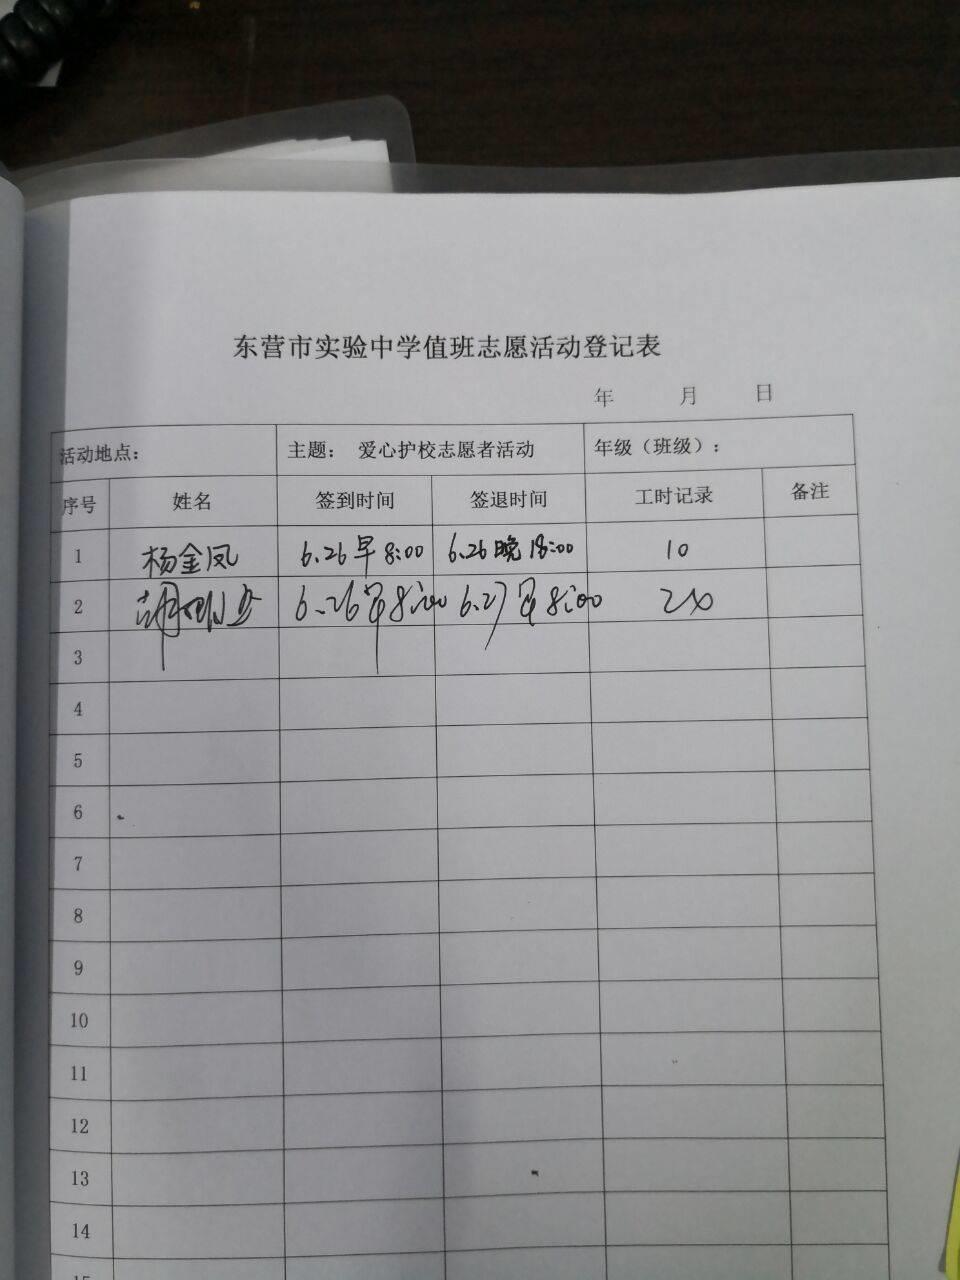 东营市实验中学值班志愿活动登记表
年 月 日
活动地点： 主题： 爱心护校志愿者活动 年级（班级）：
序号 姓名 签到时间 签退时间 工时记录 备注
1 杨金凤 6.26早8:00 6.26晚18:00 10
2 6.26早8:00 6.27早8:00 24
3
4
5
6
7
8
9
10
11
12
13
14